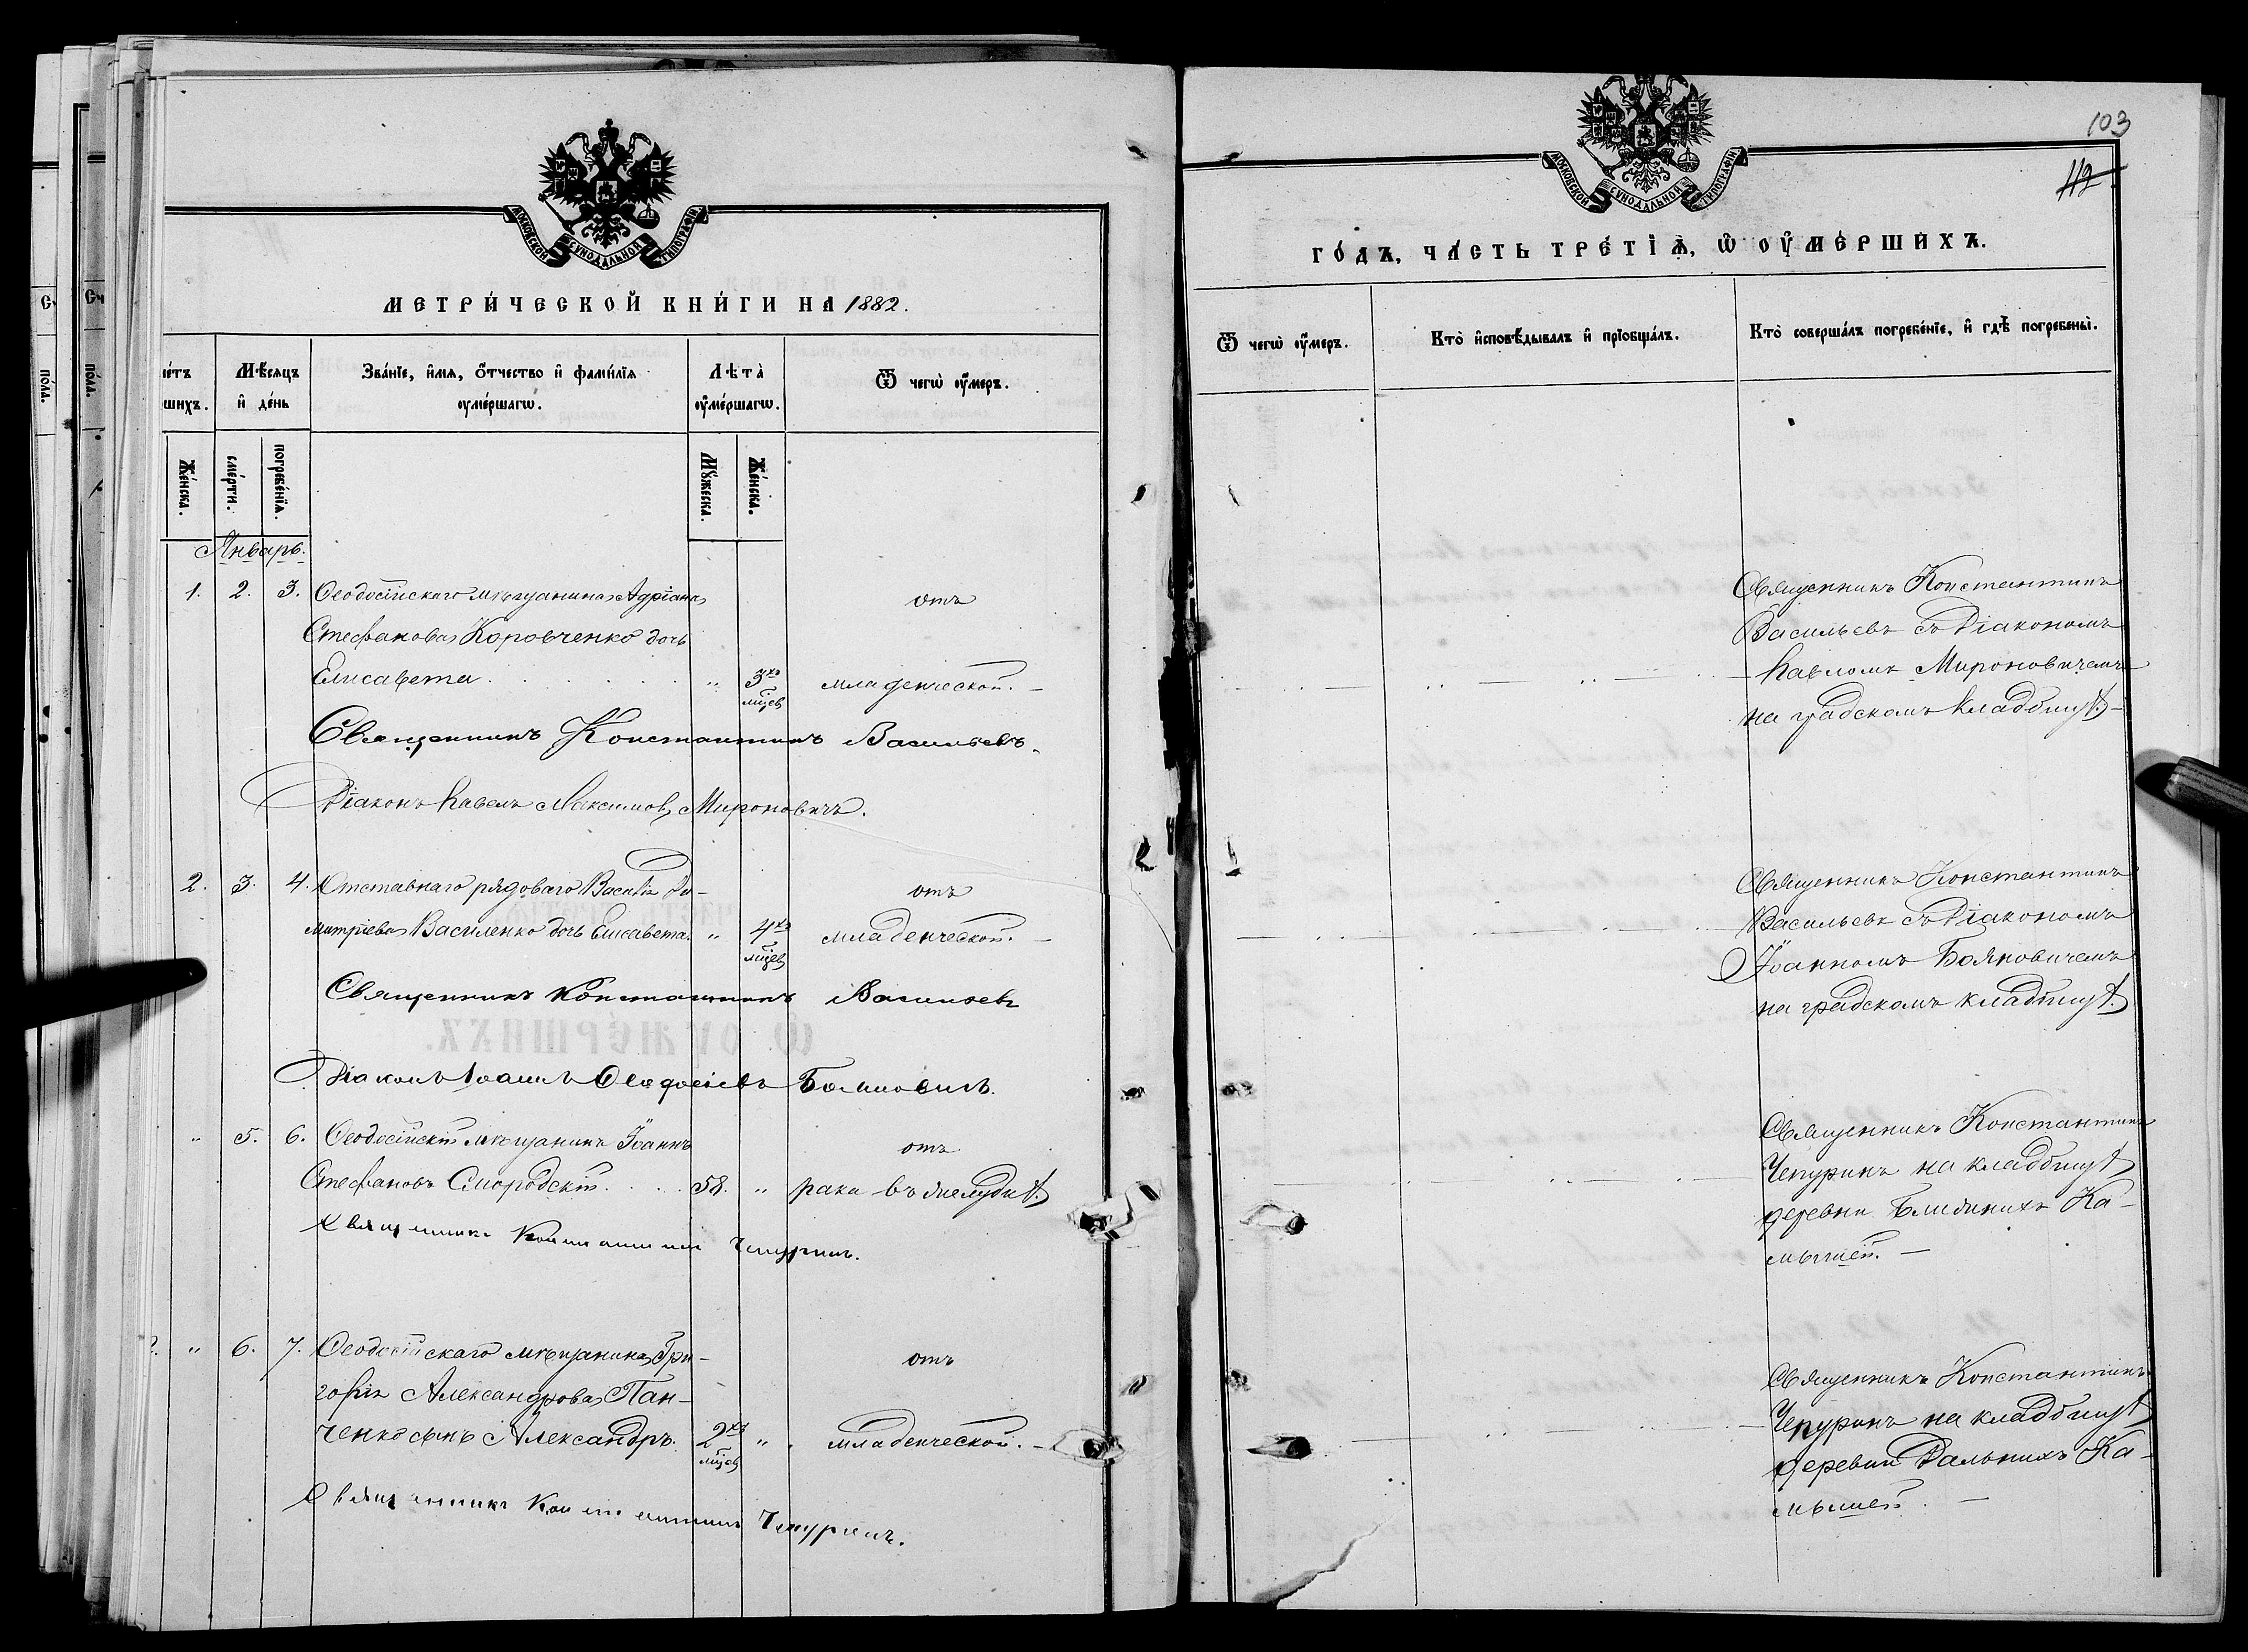 МОСКОВСКОЙ СѴНОДАЛЬНОЙ ТИПОГРАФІИ
МЕТРИ́ЧЕСКОЙ КНИ́ГИ НА 1882.
Мѣ́сяцъ и҆ де́нь
Зва́нїе, и҆́мѧ, ѻ҆́тчество и҆ фами́лїѧ ᲂу҆ме́ршагѡ.
Лѣ́та ᲂу҆ме́ршагѡ.
Ѿ чегѡ̀ ᲂу҆́меръ.
Же́нска.
сме́рти.
погребе́нїѧ.
Мꙋ́жеска.
Же́нска.
Январь.
1. 2. 3. Ѳеодосійскаго мѣщанина Адріана отъ
Стефанова Коровченко дочь
Елисавета " 3хъ мцев младенческой. –
Священникъ Константинъ Васильевъ.
Діаконъ Павелъ Максимовъ Мироновичъ.
2. 3. 4. Отставнаго рядоваго Василія Ди- отъ
митріева Василенко дочь Елисавета. " 4хъ мцев младенческой. –
Священникъ Константинъ Васильевъ
Діаконъ Іоаннъ Ѳеодосіевъ Бояновичъ.
" 5. 6. Ѳеодосійскій мѣщанинъ Іоаннъ отъ
Стефановъ Смородскій 58. " рака въ желудкѣ.
Священникъ Константинъ Чепуринъ.
" 6. 7. Ѳеодосійскаго мѣщанина Гри- отъ
горія Александрова Пан-
ченко сынъ Александръ. 2хъ мцев " младенческой. –
Священникъ Константинъ Чепуринъ.
103
112
МОСКОВСКОЙ СѴНОДАЛЬНОЙ ТИПОГРАФІИ
ГО́ДЪ, ЧА́СТЬ ТРЕ́ТЇѦ, Ѡ҆ ОУ҆МЕ́РШИХЪ.
Ѿ чегѡ̀ ᲂу҆́меръ.
Кто̀ и҆сповѣ́дывалъ и҆ прїѡбща́лъ.
Кто̀ соверша́лъ погребе́нїе, и҆ гдѣ̀ погребены̀.
Священникъ Константинъ
Васильевъ съ Діакономъ
Павломъ Мироновичемъ
на градскомъ кладбищѣ –
Священникъ Константинъ
Васильевъ съ Діакономъ
Іоанномъ Бояновичемъ
на градскомъ кладбищѣ.
Священникъ Константинъ
Чепуринъ на кладбищѣ
деревни Ближнихъ Ка-
мышей. –
Священникъ Константинъ
Чепуринъ на кладбищѣ
деревни Дальнихъ Ка-
мышей. –